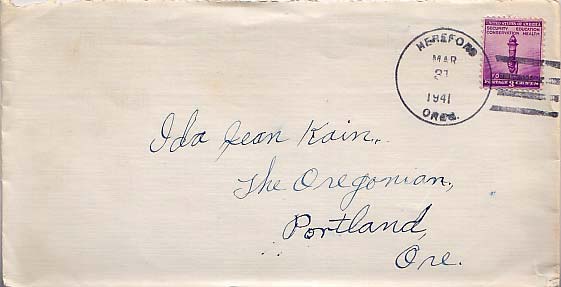 HEREFORD
MAR
21
1941
OREG.
UNITED STATES OF AMERICA
SECURITY EDUCATION
CONSERVATION HEALTH
Ida Jean Kain,
The Oregonian,
Portland,
Ore.